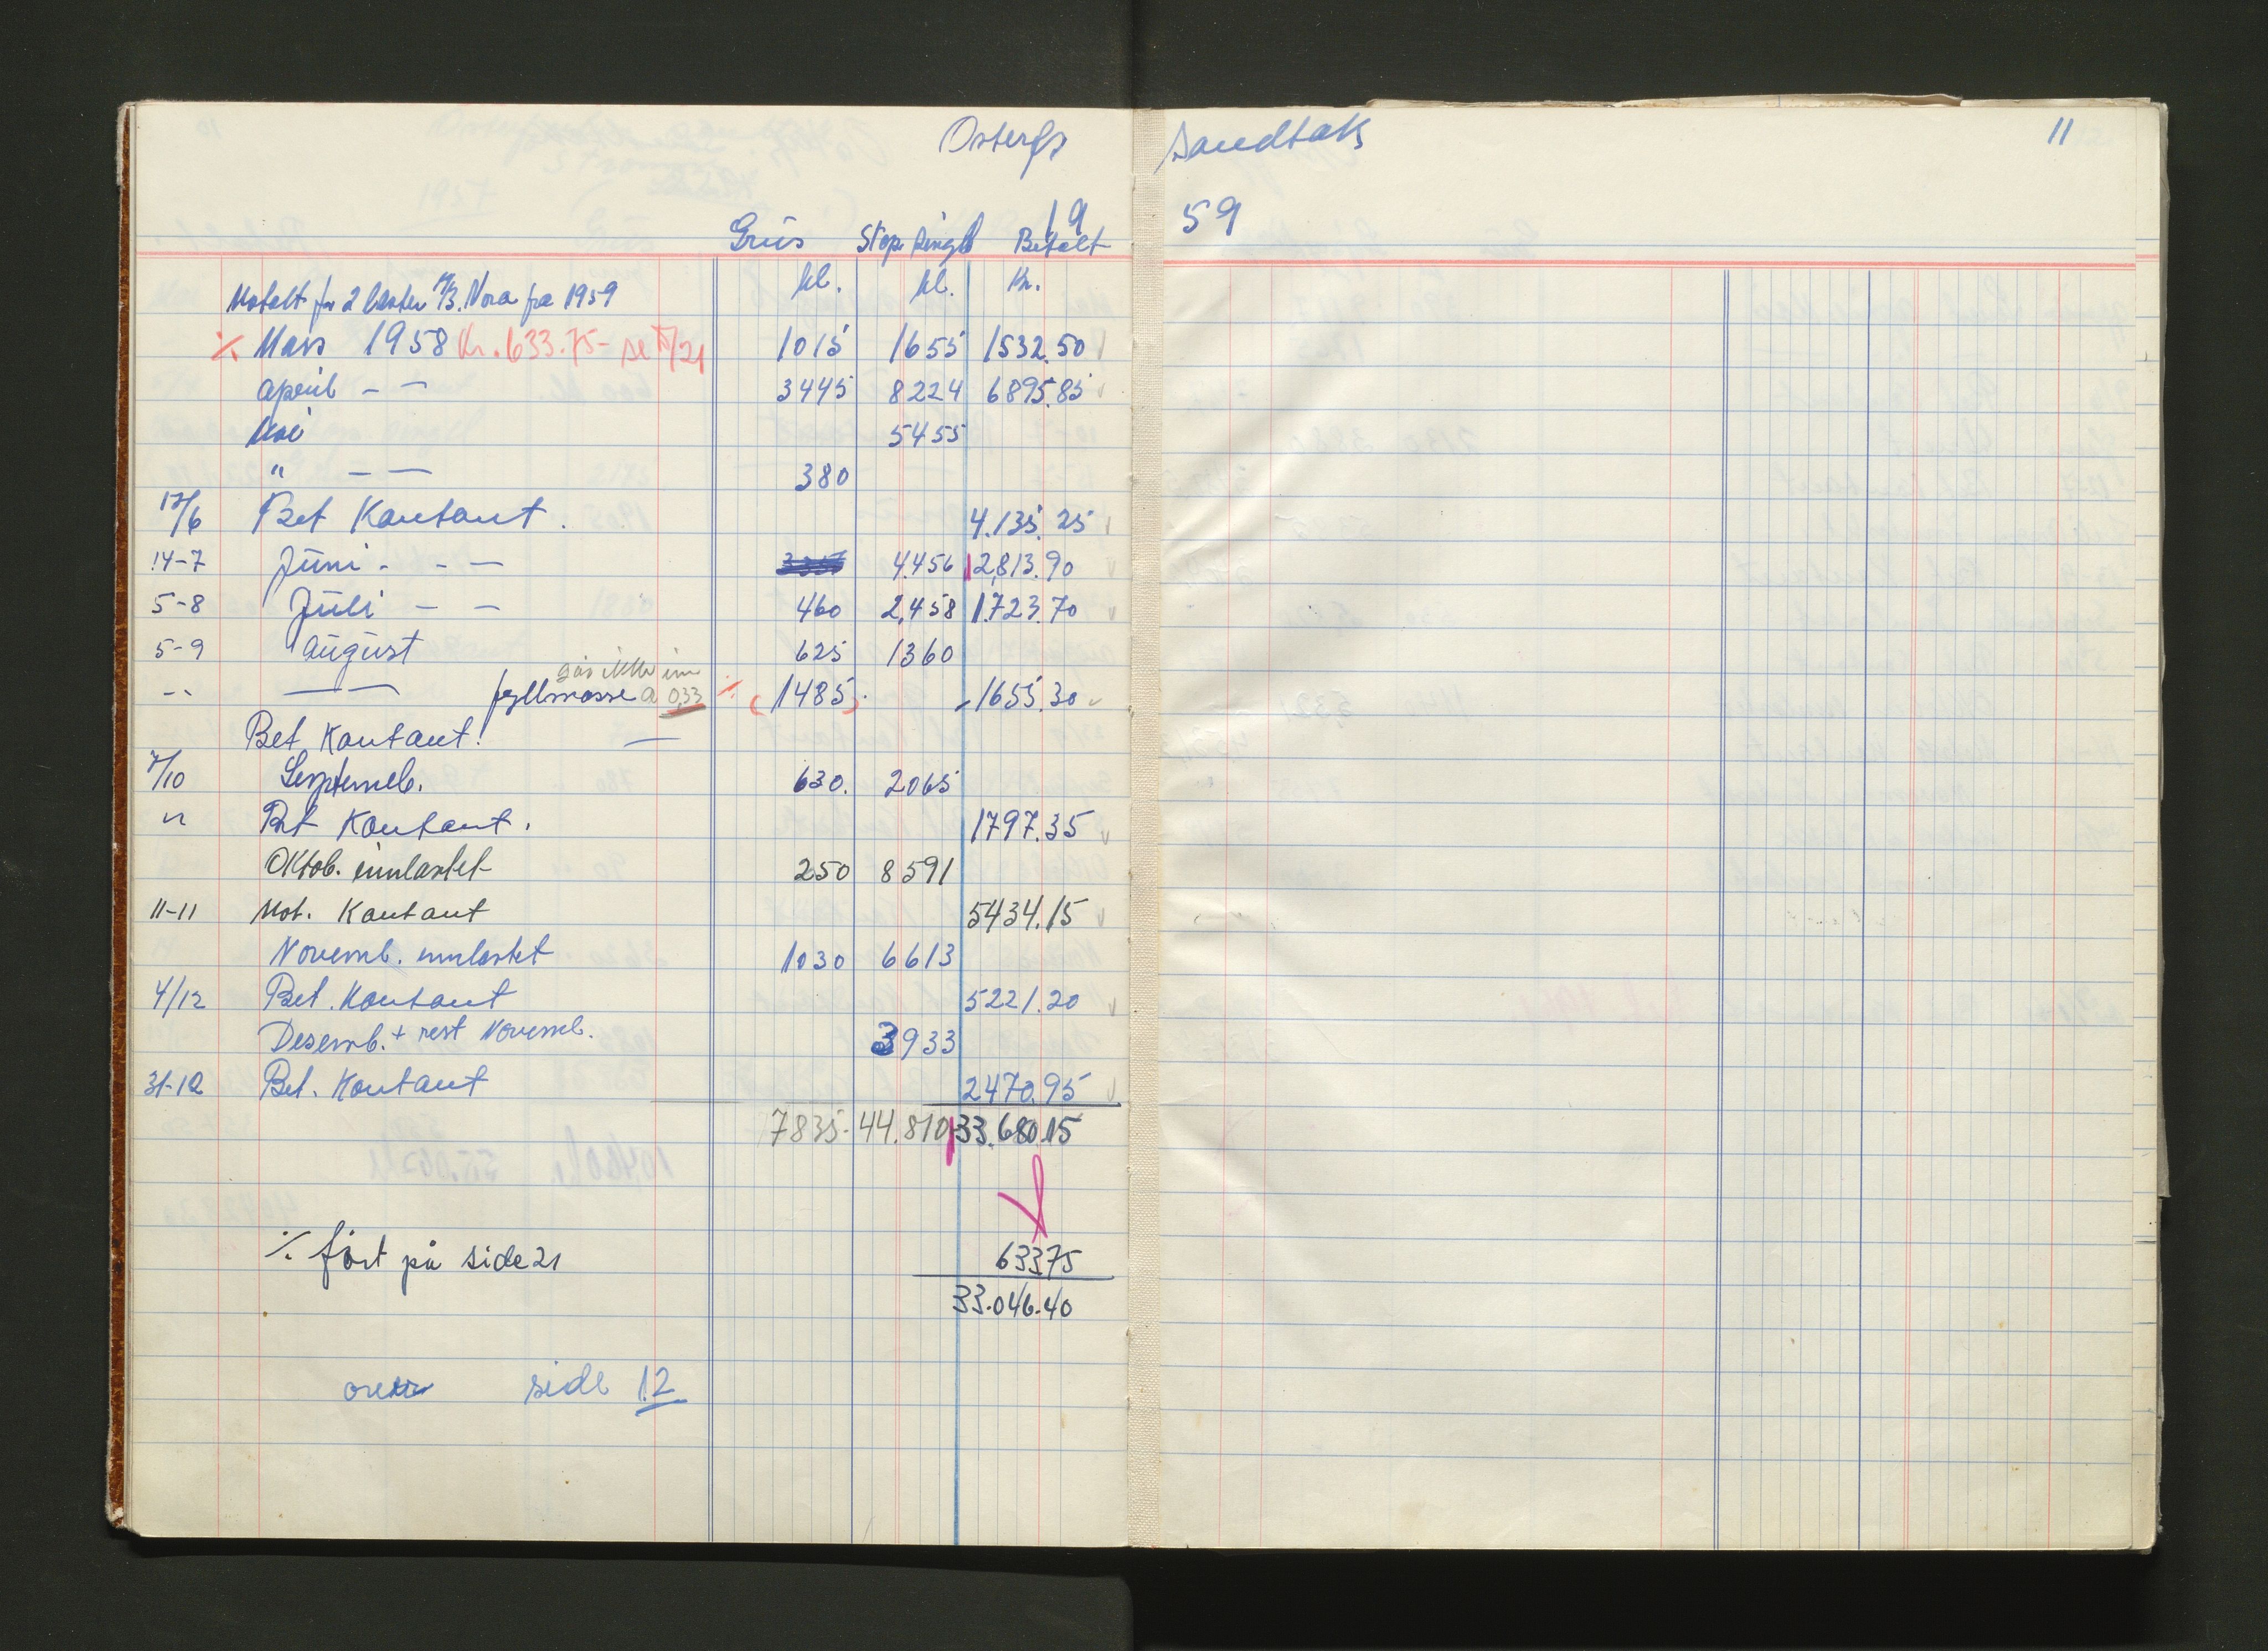 Ostergs sandtak 11
19 59
Grus Stöpe singel Betalt
hl. hl. Kr.
Motatt for 2 laster 11/3. Nora fra 1959
% Mars 1958 Kr. 633.75 - se 21 1015 1655 1532.50
April - - 3445 8224 6895.85
Mai 5455
" - - 380
12/6 Bet Kontant. 4.135.25
14-7 Juni - - - 4.456 2813.90
5-8 Juli - - 460 2.458 1723.70
5-9 August 625 1360
går ikke inn
-"- fyllmasse a 0,33 % (1485) - 1655.30
Bet Kontant! -
7/10 Septemb. 630. 2065
" Bet Kontant. 1797.35
Oktob. innlastet 250 8591
11-11 Mot. Kontant 5434.15
Novemb. innlastet 1030 6613
4/12 Bet. Kontant 5221.20
Desemb. + rest Novemb. 3933
31-12 Bet. Kontant 2470.95
7835- 44.810 33.680.15
% ført på side 21 63375
33.046.40
over side 12